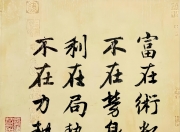 富在術數
不在勞身
利在局勢
不在力耕